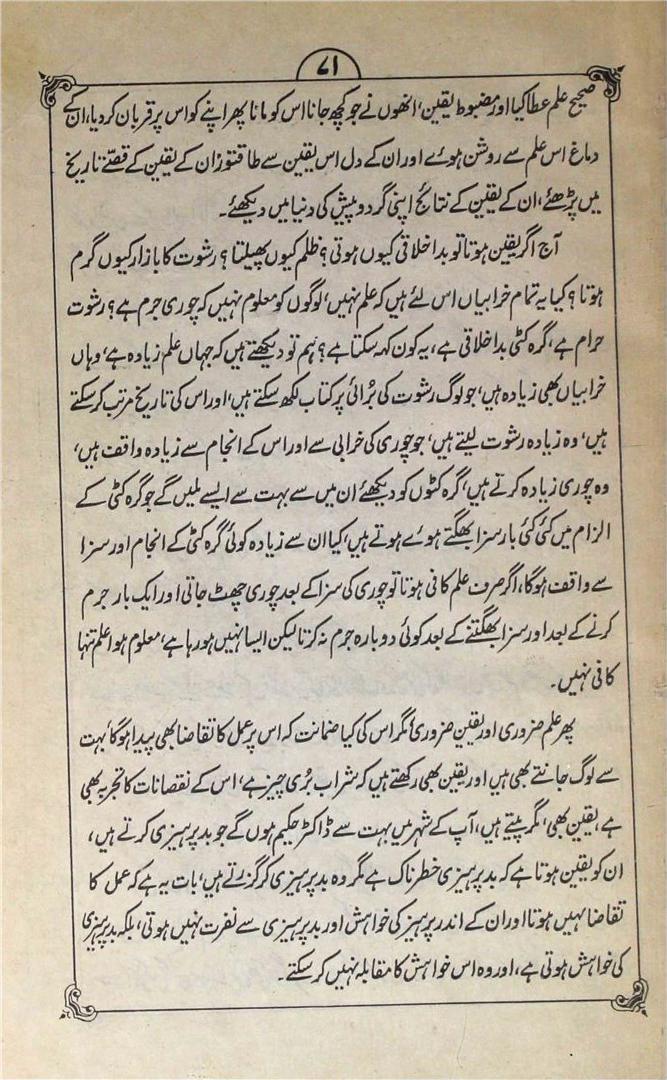 ۷۱
صحیح علم عطا کیا اور مضبوط یقین، انھوں نے جو کچھ جانا اس کو مانا پھر اپنے کو اس پر قربان کر دیا، ان کے
دماغ اس علم سے روشن ہوئے اور ان کے دل اس یقین سے طاقتور ان کے یقین کے قصّے تاریخ
میں پڑھئے، ان کے یقین کے نتائج اپنی گرد و پیش کی دنیا میں دیکھئے۔
آج اگر یقین ہوتا تو بد اخلاقی کیوں ہوتی؟ ظلم کیوں پھیلتا؟ رشوت کا بازار کیوں گرم
ہوتا؟ کیا یہ تمام خرابیاں اس لئے ہیں کہ علم نہیں، لوگوں کو معلوم نہیں کہ چوری جرم ہے؟ رشوت
حرام ہے، گرہ کٹی بد اخلاقی ہے، یہ کون کہہ سکتا ہے؟ ہم تو دیکھتے ہیں کہ جہاں علم زیادہ ہے، وہاں
خرابیاں بھی زیادہ ہیں، جو لوگ رشوت کی بُرائی پر کتاب لکھ سکتے ہیں، اور اس کی تاریخ مرتب کر سکتے
ہیں، وہ زیادہ رشوت لیتے ہیں، جو چوری کی خرابی سے اور اس کے انجام سے زیادہ واقف ہیں،
وہ چوری زیادہ کرتے ہیں، گرہ کٹوں کو دیکھئے ان میں سے بہت سے ایسے ملیں گے جو گرہ کٹی کے
الزام میں کئی کئی بار سزا بھگتے ہوئے ہوتے ہیں، کیا ان سے زیادہ کوئی گرہ کٹی کے انجام اور سزا
سے واقف ہوگا، اگر صرف علم کافی ہوتا تو چوری کی سزا کے بعد چوری چھٹ جاتی اور ایک بار جرم
کرنے کے بعد اور سزا بھگتنے کے بعد کوئی دوبارہ جرم نہ کرتا لیکن ایسا نہیں ہو رہا ہے، معلوم ہوا علم تنہا
کافی نہیں۔
پھر علم ضروری اور یقین ضروری، مگر اس کی کیا ضمانت کہ اس پر عمل کا تقاضا بھی پیدا ہوگا، بہت
سے لوگ جانتے بھی ہیں اور یقین بھی رکھتے ہیں کہ شراب بُری چیز ہے، اس کے نقصانات کا تجربہ بھی
ہے، یقین بھی، مگر پیتے ہیں، آپ کے شہر میں بہت سے ڈاکٹر حکیم ہوں گے جو بد پرہیزی کرتے ہیں،
ان کو یقین ہوتا ہے کہ بد پرہیزی خطرناک ہے مگر وہ بد پرہیزی کر گزرتے ہیں، بات یہ ہے کہ عمل کا
تقاضا نہیں ہوتا اور ان کے اندر پرہیز کی خواہش اور بد پرہیزی سے نفرت نہیں ہوتی، بلکہ بد پرہیزی
کی خواہش ہوتی ہے، اور وہ اس خواہش کا مقابلہ نہیں کر سکتے۔